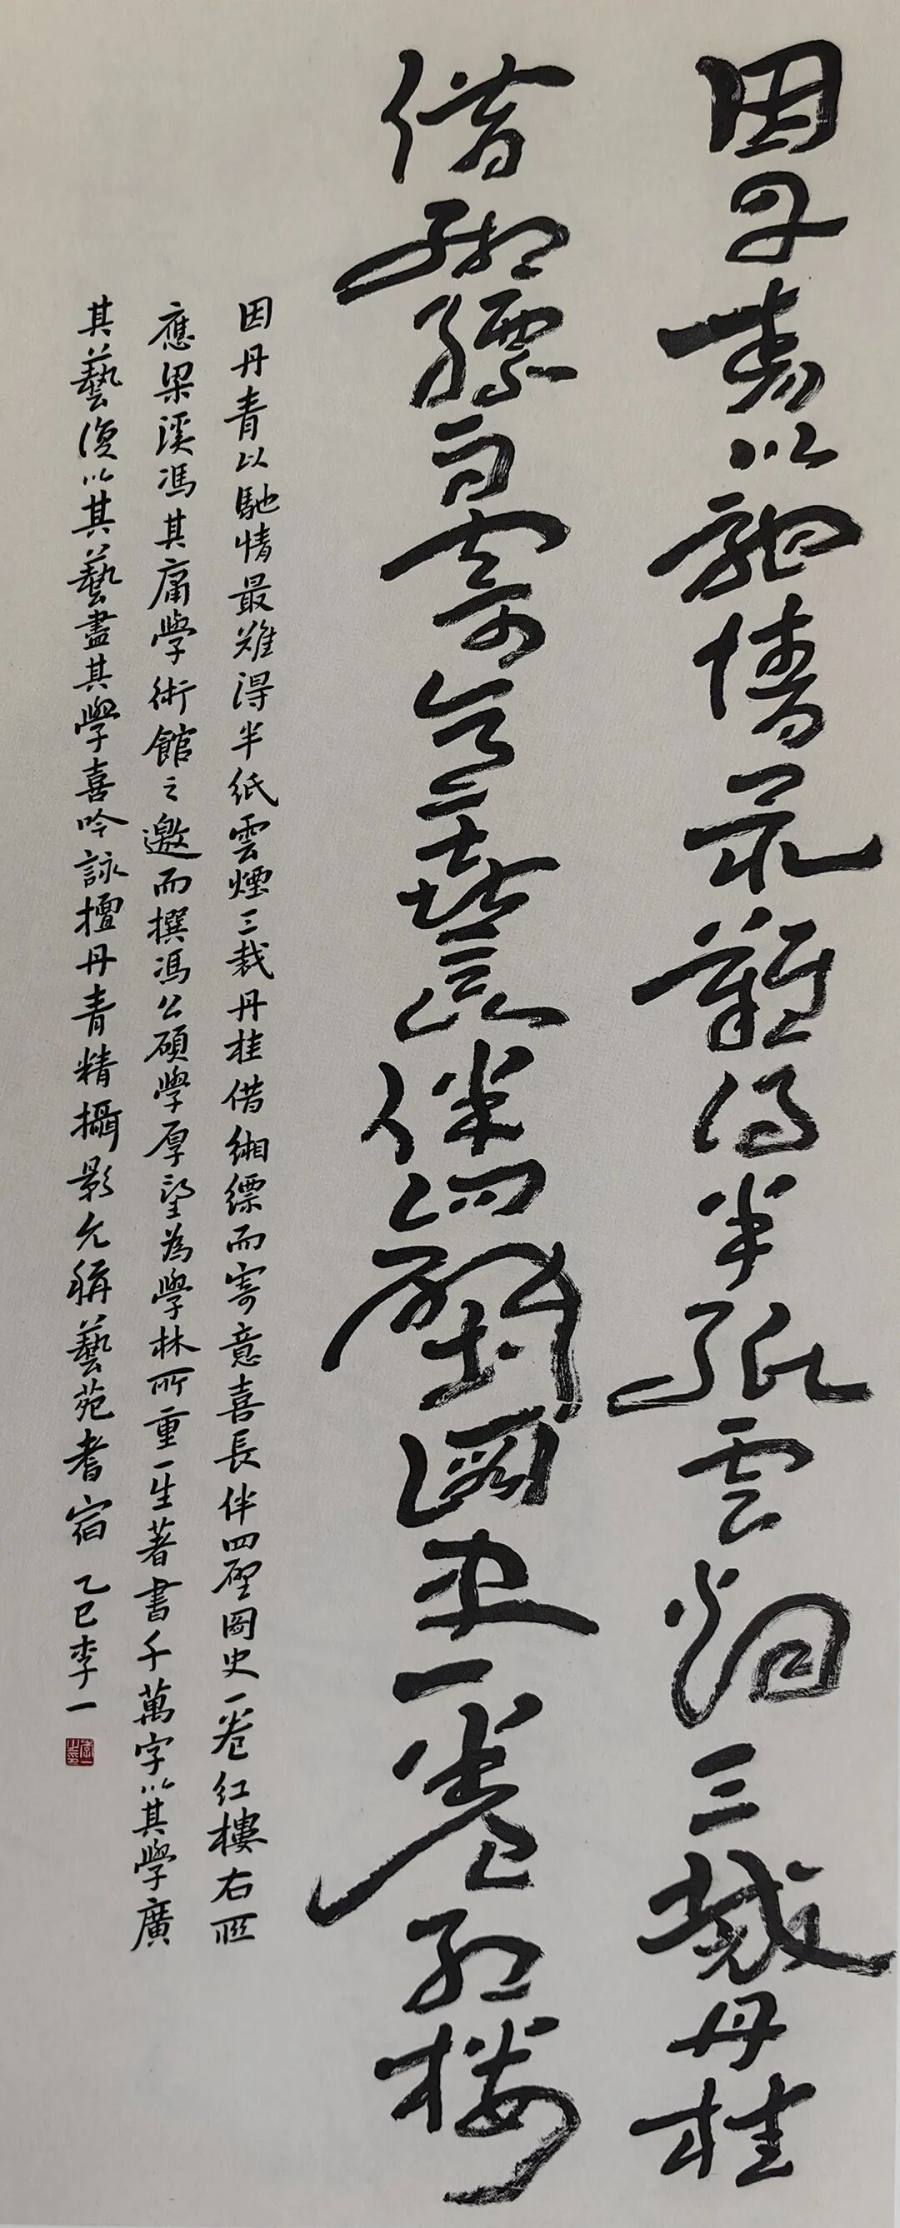 因丹青以馳情最難得半紙雲烟三裁丹桂
借緗縹而寄意喜長伴四壁圖史一卷紅樓
因丹青以馳情最難得半紙雲煙三裁丹桂借緗縹而寄意喜長伴四壁圖史一卷红樓右聯
應梁溪馮其庸學術館之邀而撰馮公碩學厚望為學林所重一生著書千萬字以其學廣
其藝復以其藝盡其學喜吟詠擅丹青精攝影允稱藝苑耆宿 乙巳李一